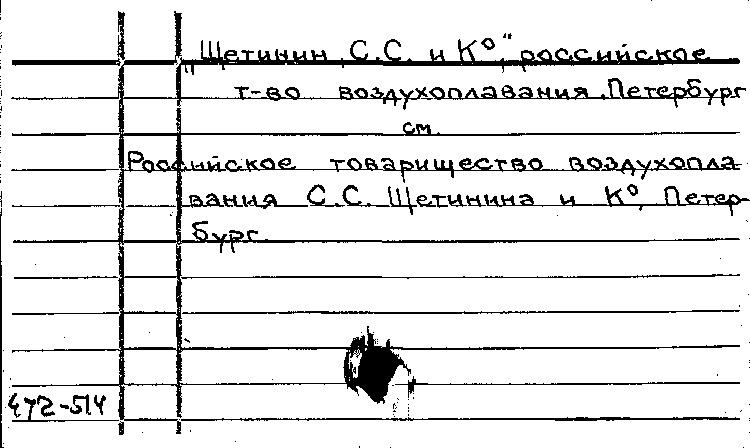 „Щетинин, С.С. и Кº“, российское
т-во воздухоплавания. Петербург
см.
Российское товарищество воздухопла-
вания С.С. Щетинина и Кº, Петер-
бург.
472-514